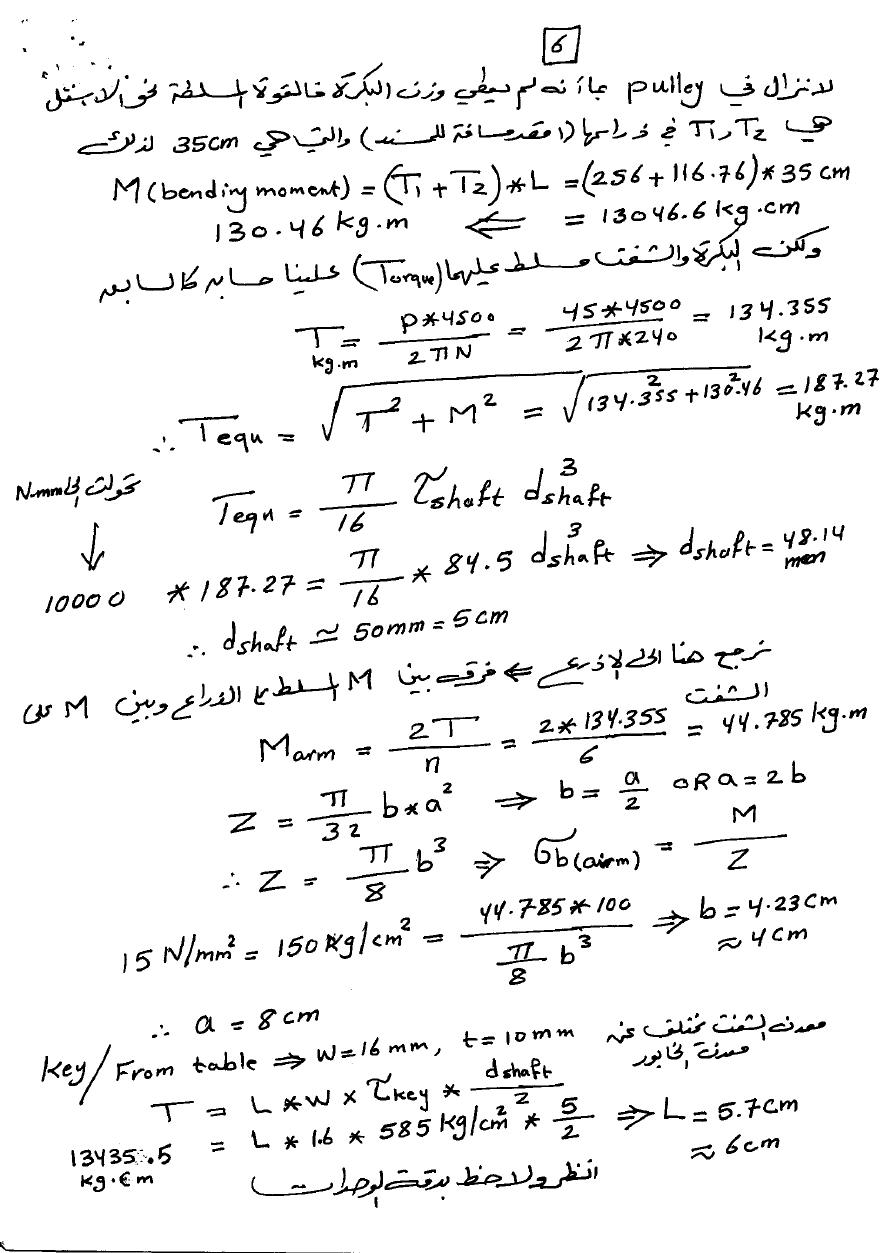 6
لا نزال في pulley بما أنه لم يعطي وزن البكرة فالقوة المسلطة نحو الاسفل
هي T1 و T2 في ذراعها (اقصد مسافة للمسند) والتي هي 35cm لذلك
M (bending moment) = (T1 + T2) * L = (256 + 116.76) * 35 cm
130.46 kg.m ⇐ = 13046.6 kg.cm
ولكن البكرة والشفت مسلط عليهما (Torque) علينا حسابه كالسابق
T kg.m = P*4500 / 2πN = 45*4500 / 2π*240 = 134.355 kg.m
∴ Tequ = √(T² + M²) = √(134.355² + 130.46²) = 187.27 kg.m
تحولت الى N-mm
↓
Tequ = π/16 τshaft d³shaft
10000 * 187.27 = π/16 * 84.5 d³shaft ⇒ dshaft = 48.14 mm
∴ dshaft ≃ 50mm = 5cm
نرجع هنا الى الاذرع ← فرق بين M المسلط على الأذراع وبين M على الشفت
Marm = 2T / n = 2*134.355 / 6 = 44.785 kg.m
Z = π/32 b*a² ⇒ b = a/2 OR a=2b
∴ Z = π/8 b³ ⇒ σb(arm) = M / Z
15 N/mm² = 150 kg/cm² = 44.785*100 / π/8 b³ ⇒ b = 4.23cm ≈ 4cm
∴ a = 8cm
معدن الشفت يختلف عن معدن الخابور
Key/ From table ⇒ W=16 mm, t=10mm
T = L * W × τkey * dshaft / 2
13435.5 kg.cm = L * 1.6 * 585 kg/cm² * 5/2 ⇒ L = 5.7cm ≈ 6cm
انظر ولاحظ بدقة الوحدات